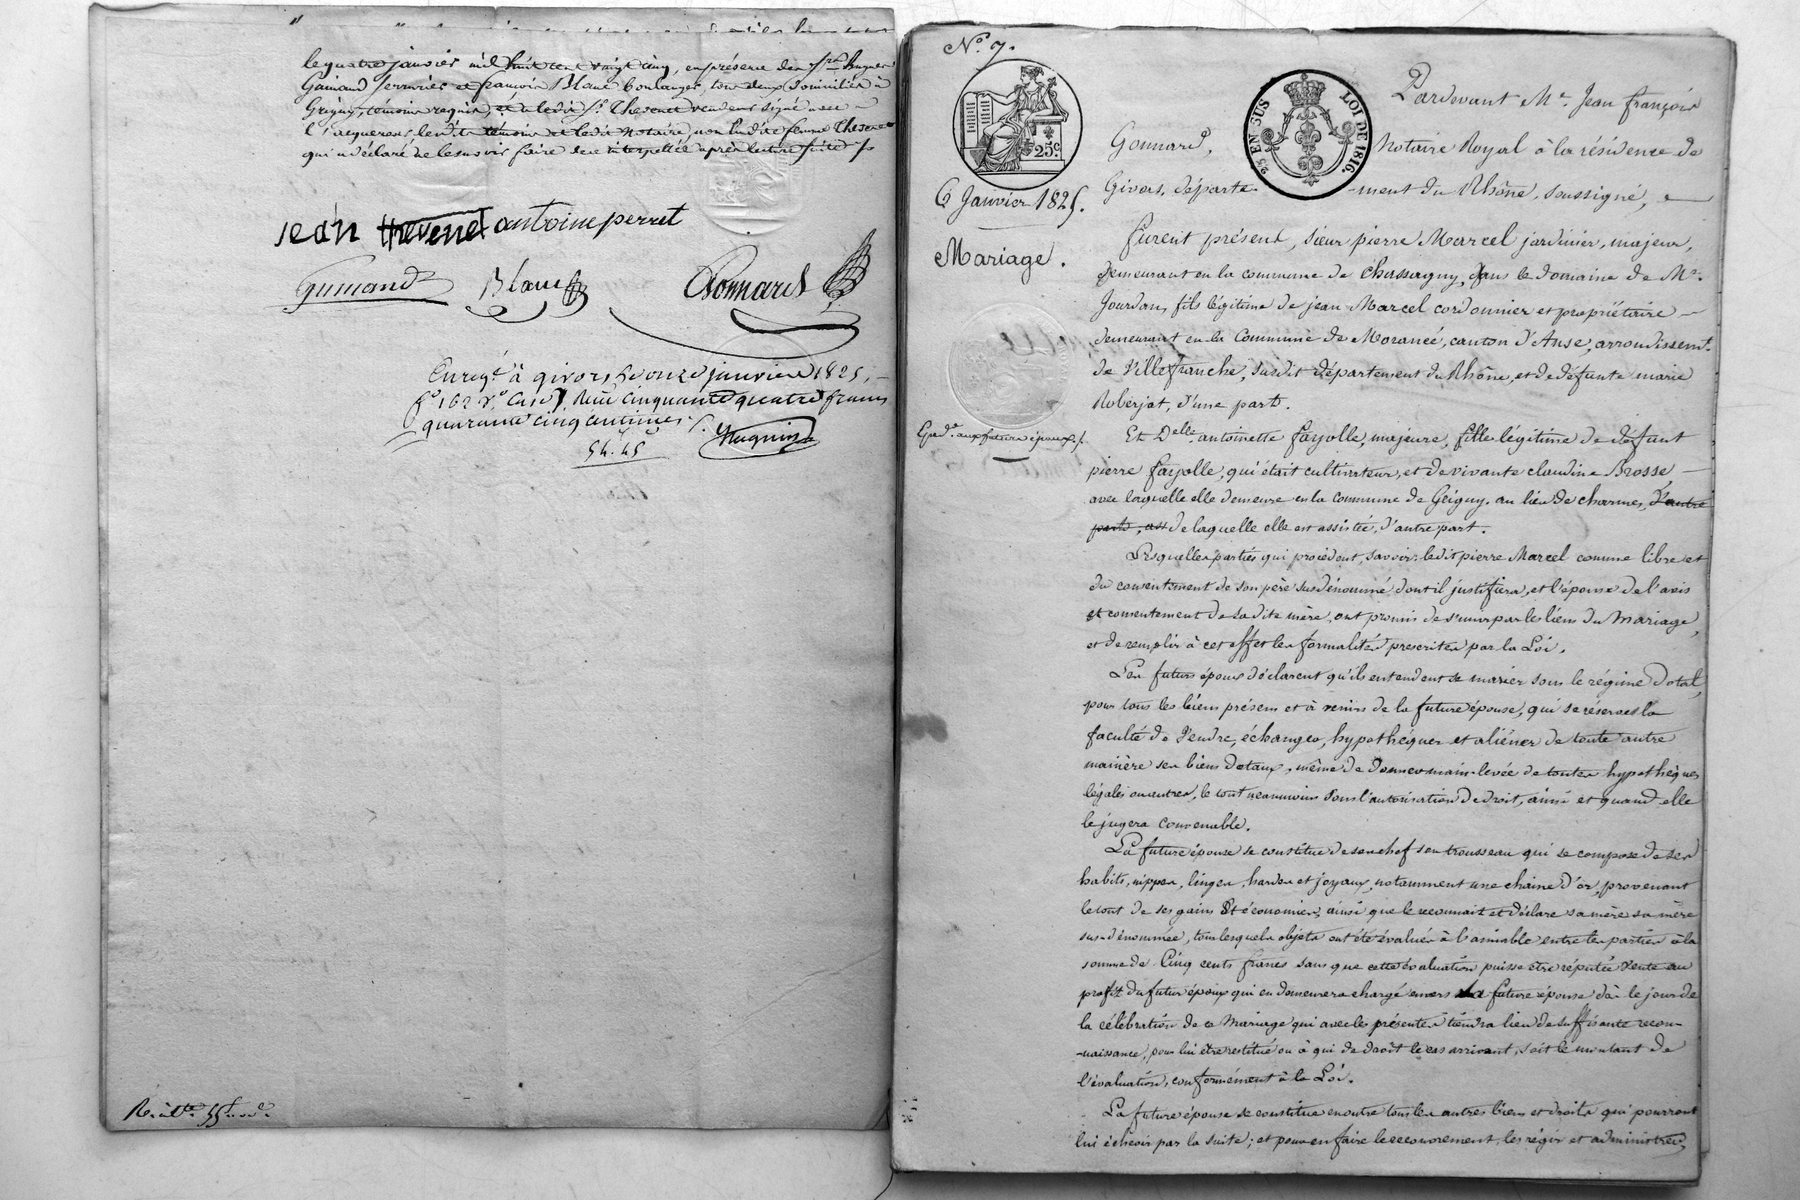 le quatre janvier mil huit cent vingt cinq, en présence des Srs hugues
Guinand serrurier et françois Blanc boulanger, tous deux domiciliés à
Grigny, témoins requis, et le dit Sr. Thevenet vendeur signé avec
l'acquereur les dits témoins et le dit notaire, non la dite femme Thevenet
qui a déclaré ne le savoir faire de ce interpellée après lecture faite
jean thevenet antoine perret
Guinand Blanc Gonnard
Enregé. à givors, le onze janvier 1825,
fo. 162 vo. Case 7, Reçu cinquante quatre francs
quarante cinq centimes
54.45
No. 7.
25 EN SUS LOI DE 1816.
25c.
6 Janvier 1825.
Mariage.
Pardevant Me. Jean françois
Gonnard, Notaire Royal à la résidence de
Givors, départe-ment du Rhône, soussigné,
furent présent, sieur pierre Marcel jardinier, majeur,
demeurant en la commune de Chassagny, dans le domaine de Mr.
Jourdan, fils légitime de jean Marcel cordonnier et propriétaire
demeurant en la Commune de Morancé, canton d'Anse, arrondissemt.
de Villefranche, susdit département du Rhône, et de défunte marie
Roberjat, d'une part.
Et Delle antoinette fayolle, majeure, fille légitime de défunt
pierre fayolle, qui était cultivateur, et de vivante claudine Brosse
avec laquelle elle demeure en la commune de Grigny, au lieu de charmes, d'autre
part, et de laquelle elle est assistée, d'autre part.
Gr.de. aux futurs époux
Lesquelles parties qui procèdent, savoir: ledit pierre Marcel comme libre et
du consentement de son père susdénommé dont il justifiera, et l'épouse de l'avis
et consentement de sa dite mère, ont promis de s'unir par les liens du Mariage,
et de remplir à cet effet les formalités prescrites par la Loi.
Les futurs époux déclarent qu'ils entendent se marier sous le régime dotal,
pour tous les biens présens et à venir de la future épouse, qui se réserve la
faculté de Vendre, échanger, hypothéquer et aliéner de toute autre
manière ses biens dotaux, même de donner main-levée de toutes hypothèques
légales ou autres, le tout neanmoins sous l'autorisation de droit, ainsi et quand elle
le jugera convenable.
La future épouse se constitue de son chef son trousseau qui se compose de ses
habits, nippes, linges, hardes et joyaux, notamment une chaine d'or, provenant
le tout de ses gains et économies, ainsi que le reconnait et déclare sa mère sa mère
sus-dénommée, tous lesquels objets ont été évalués à l'amiable entre les parties à la
somme de Cinq cents francs sans que cette évaluation puisse être réputée Vente au
profit du futur époux qui en demeurera chargé envers la future épouse dès le jour de
la célébration de ce Mariage qui avec les présentes tiendra lieu de suffisante recon-
-naissance, pour lui être restitué ou à qui de droit le cas arrivant, soit le montant de
l'évaluation, conformément à la Loi.
La future épouse se constitue en outre tous les autres biens et droits qui pourront
lui écheoir par la suite; et pour en faire le recouvrement, les régir et administrer,